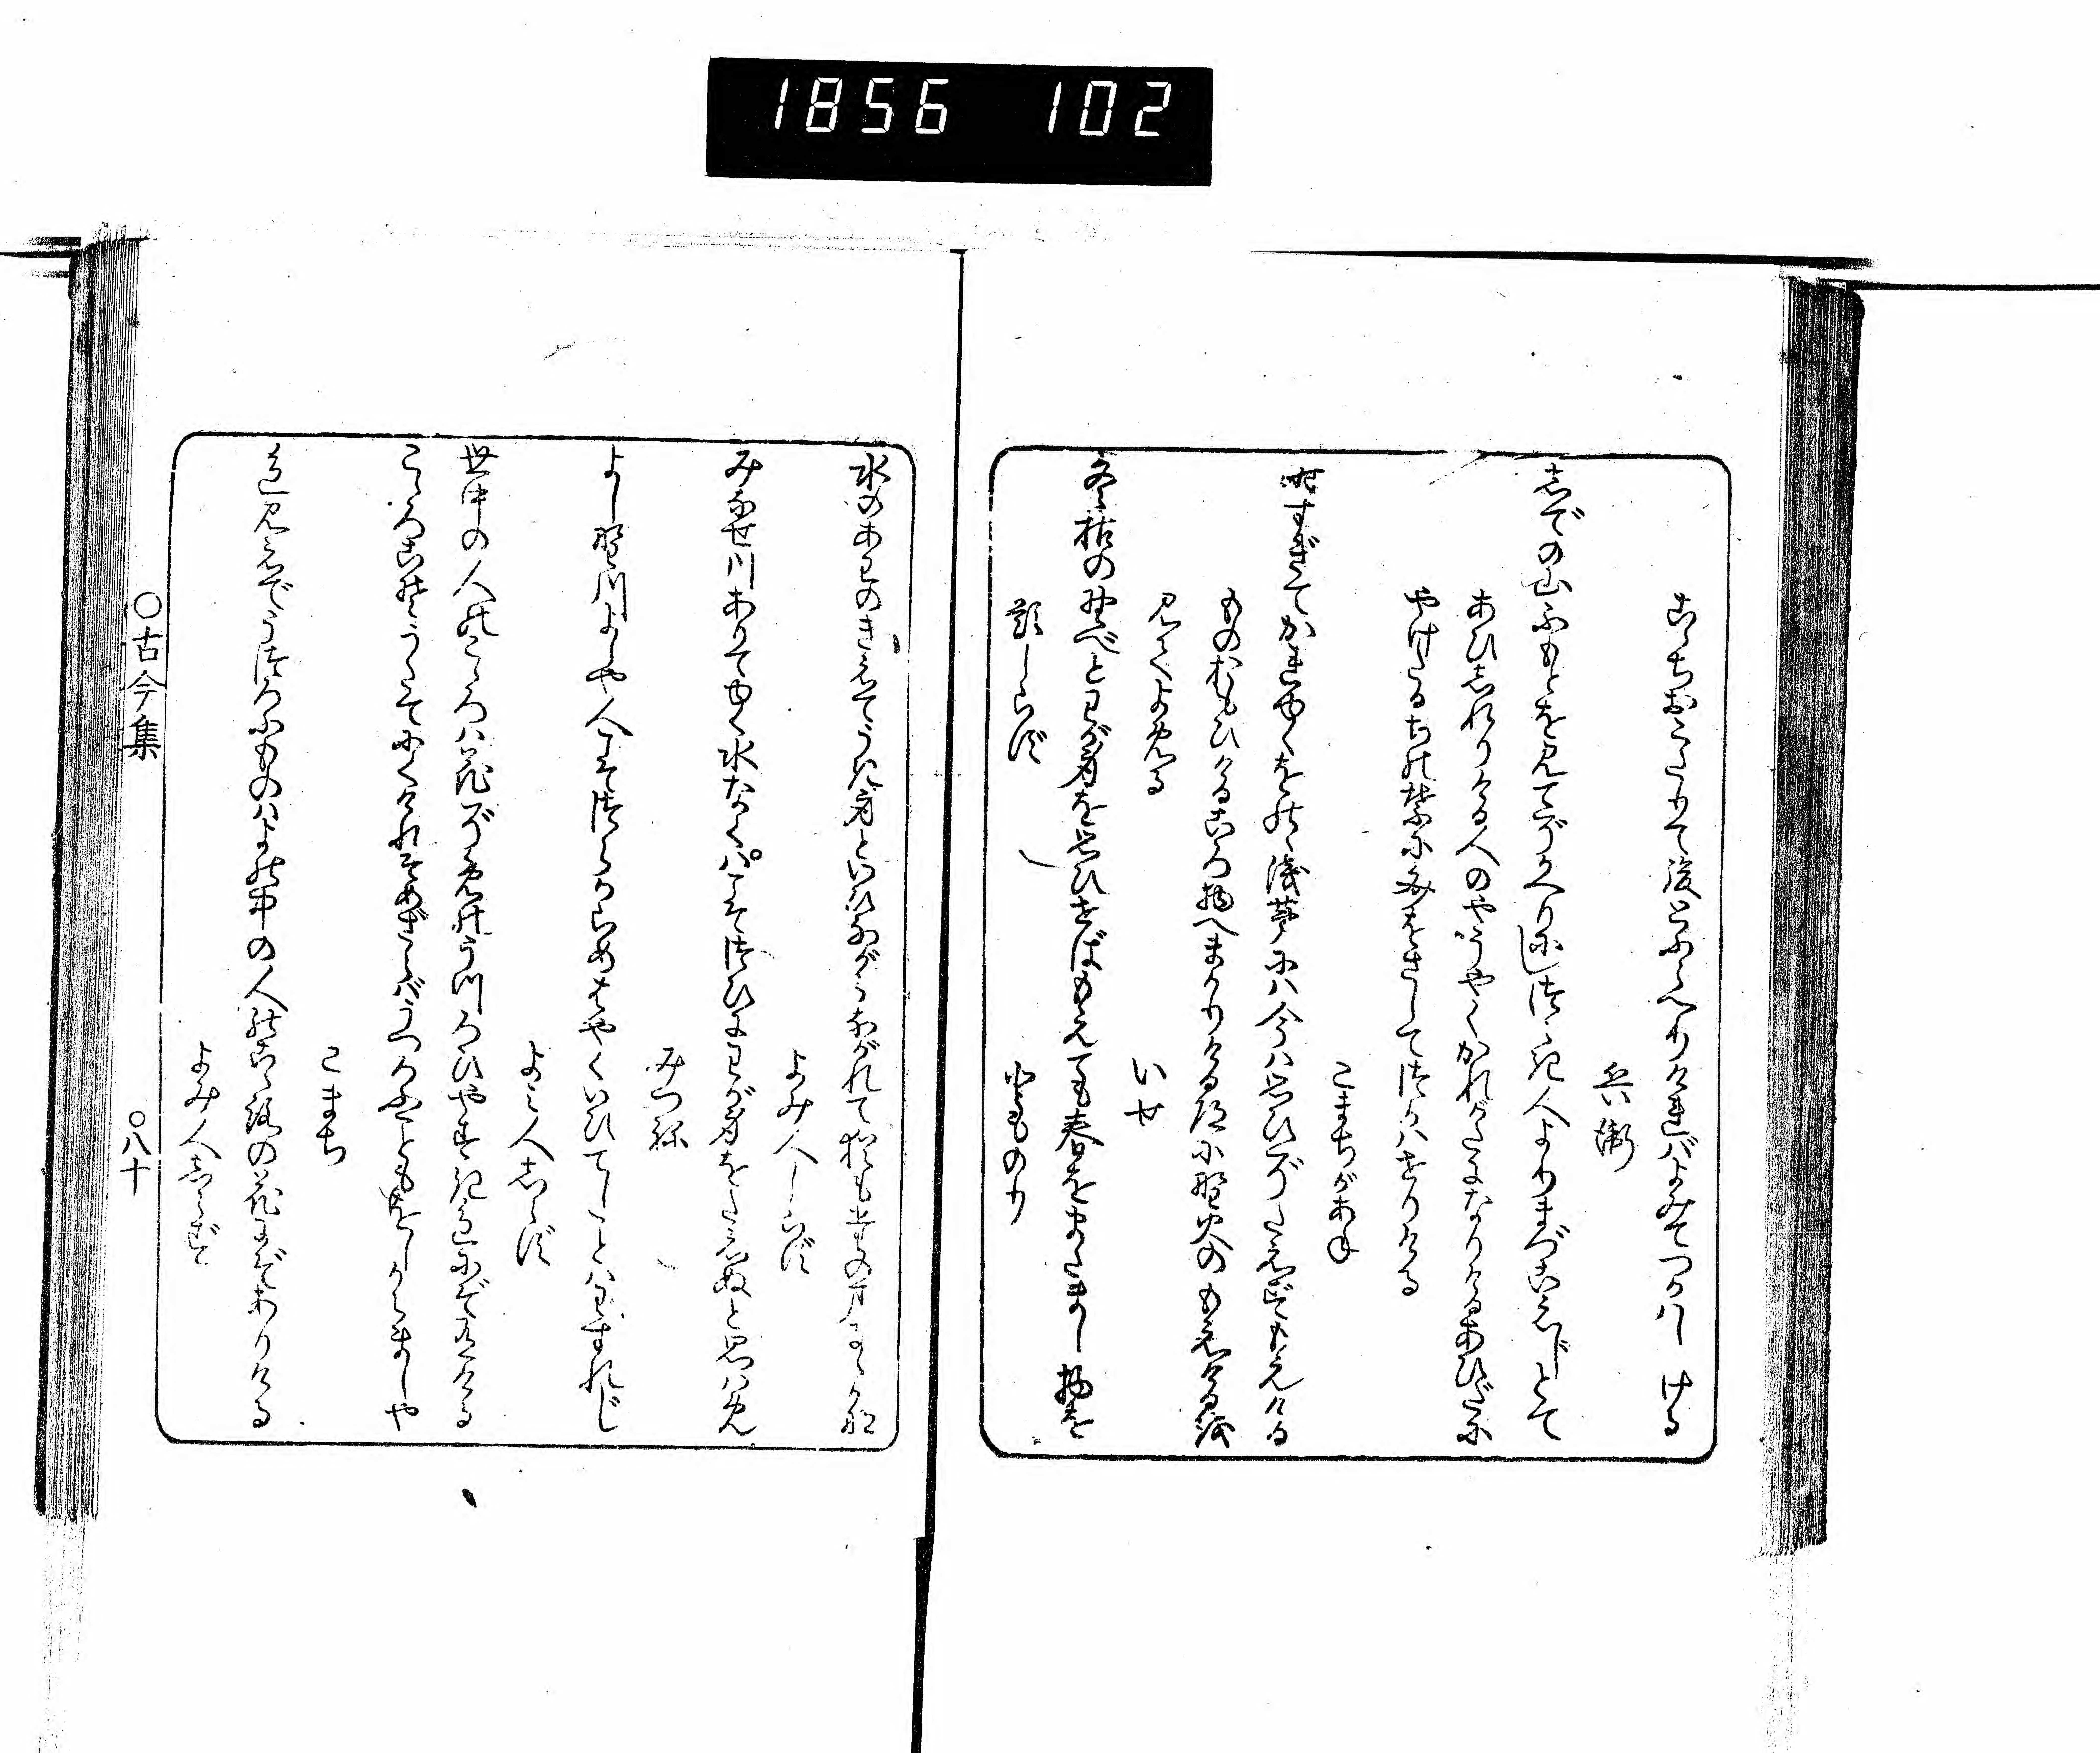 1856 102
こゝちおこたりて後とふらへりければよみてつかはしける
兵衛
志での山ふもとを見てぞかへりにしつらき人よりまづこえじとて
あひ志れりける人のやうやくかれがたになりけるあひだに
やけたるちの葉に文をさしてつかはせりける
こまちがあね
時すぎてかれゆくをのゝ浅茅には今は思ひぞたえずもえける
ものおもひけるころ物へまかりける道に野火のもえけるを
見てよめる
いせ
冬枯の野べとわが身を思ひせばもえても春をまたまし物を
題しらず
とものり
水のあわのきえでうき身といひながらながれて猶もたのまるゝかな
よみ人しらず
みなせ川ありてゆく水なくばこそつひにわが身をたえぬと思はめ
みつね
よし野川よしや人こそつらからめはやくいひてしことはわすれじ
よみ人志らず
世中の人のこゝろは花ぞめのうつろひやすき色にぞ有ける
こゝろこそうたてにくけれそめざらばうつろふこともをしからましや
こまち
色見えでうつろふものはよの中の人のこゝろの花にぞありける
よみ人志らず
〇古今集
〇八十